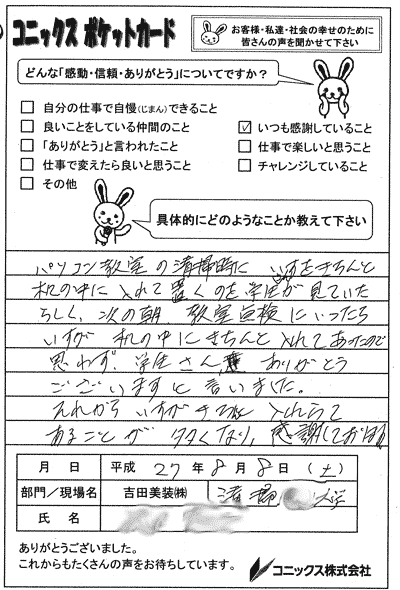 コニックス ポケットカード
お客様・私達・社会の幸せのために
皆さんの声を聞かせて下さい
どんな「感動・信頼・ありがとう」についてですか？
自分の仕事で自慢(じまん)できること
良いことをしている仲間のこと
☑ いつも感謝していること
「ありがとう」と言われたこと
仕事で楽しいと思うこと
仕事で変えたら良いと思うこと
チャレンジしていること
その他
具体的にどのようなことか教えて下さい
パソコン教室の清掃時に いすをきちんと
机の中に入れて置くのを学生が見ていた
らしく、次の朝 教室点検にいったら
いすが 机の中にきちんと入れてあったので
思わず、学生さん ありがとう
ございますと言いました。
それから いすが 入れられて
あることが 多くなり、感謝しており
月 日 平成 27年 8月 8日 (土)
部門/現場名 吉田美装㈱ 清掃 大学
氏 名
ありがとうございました。
これからもたくさんの声をお待ちしています。
コニックス株式会社